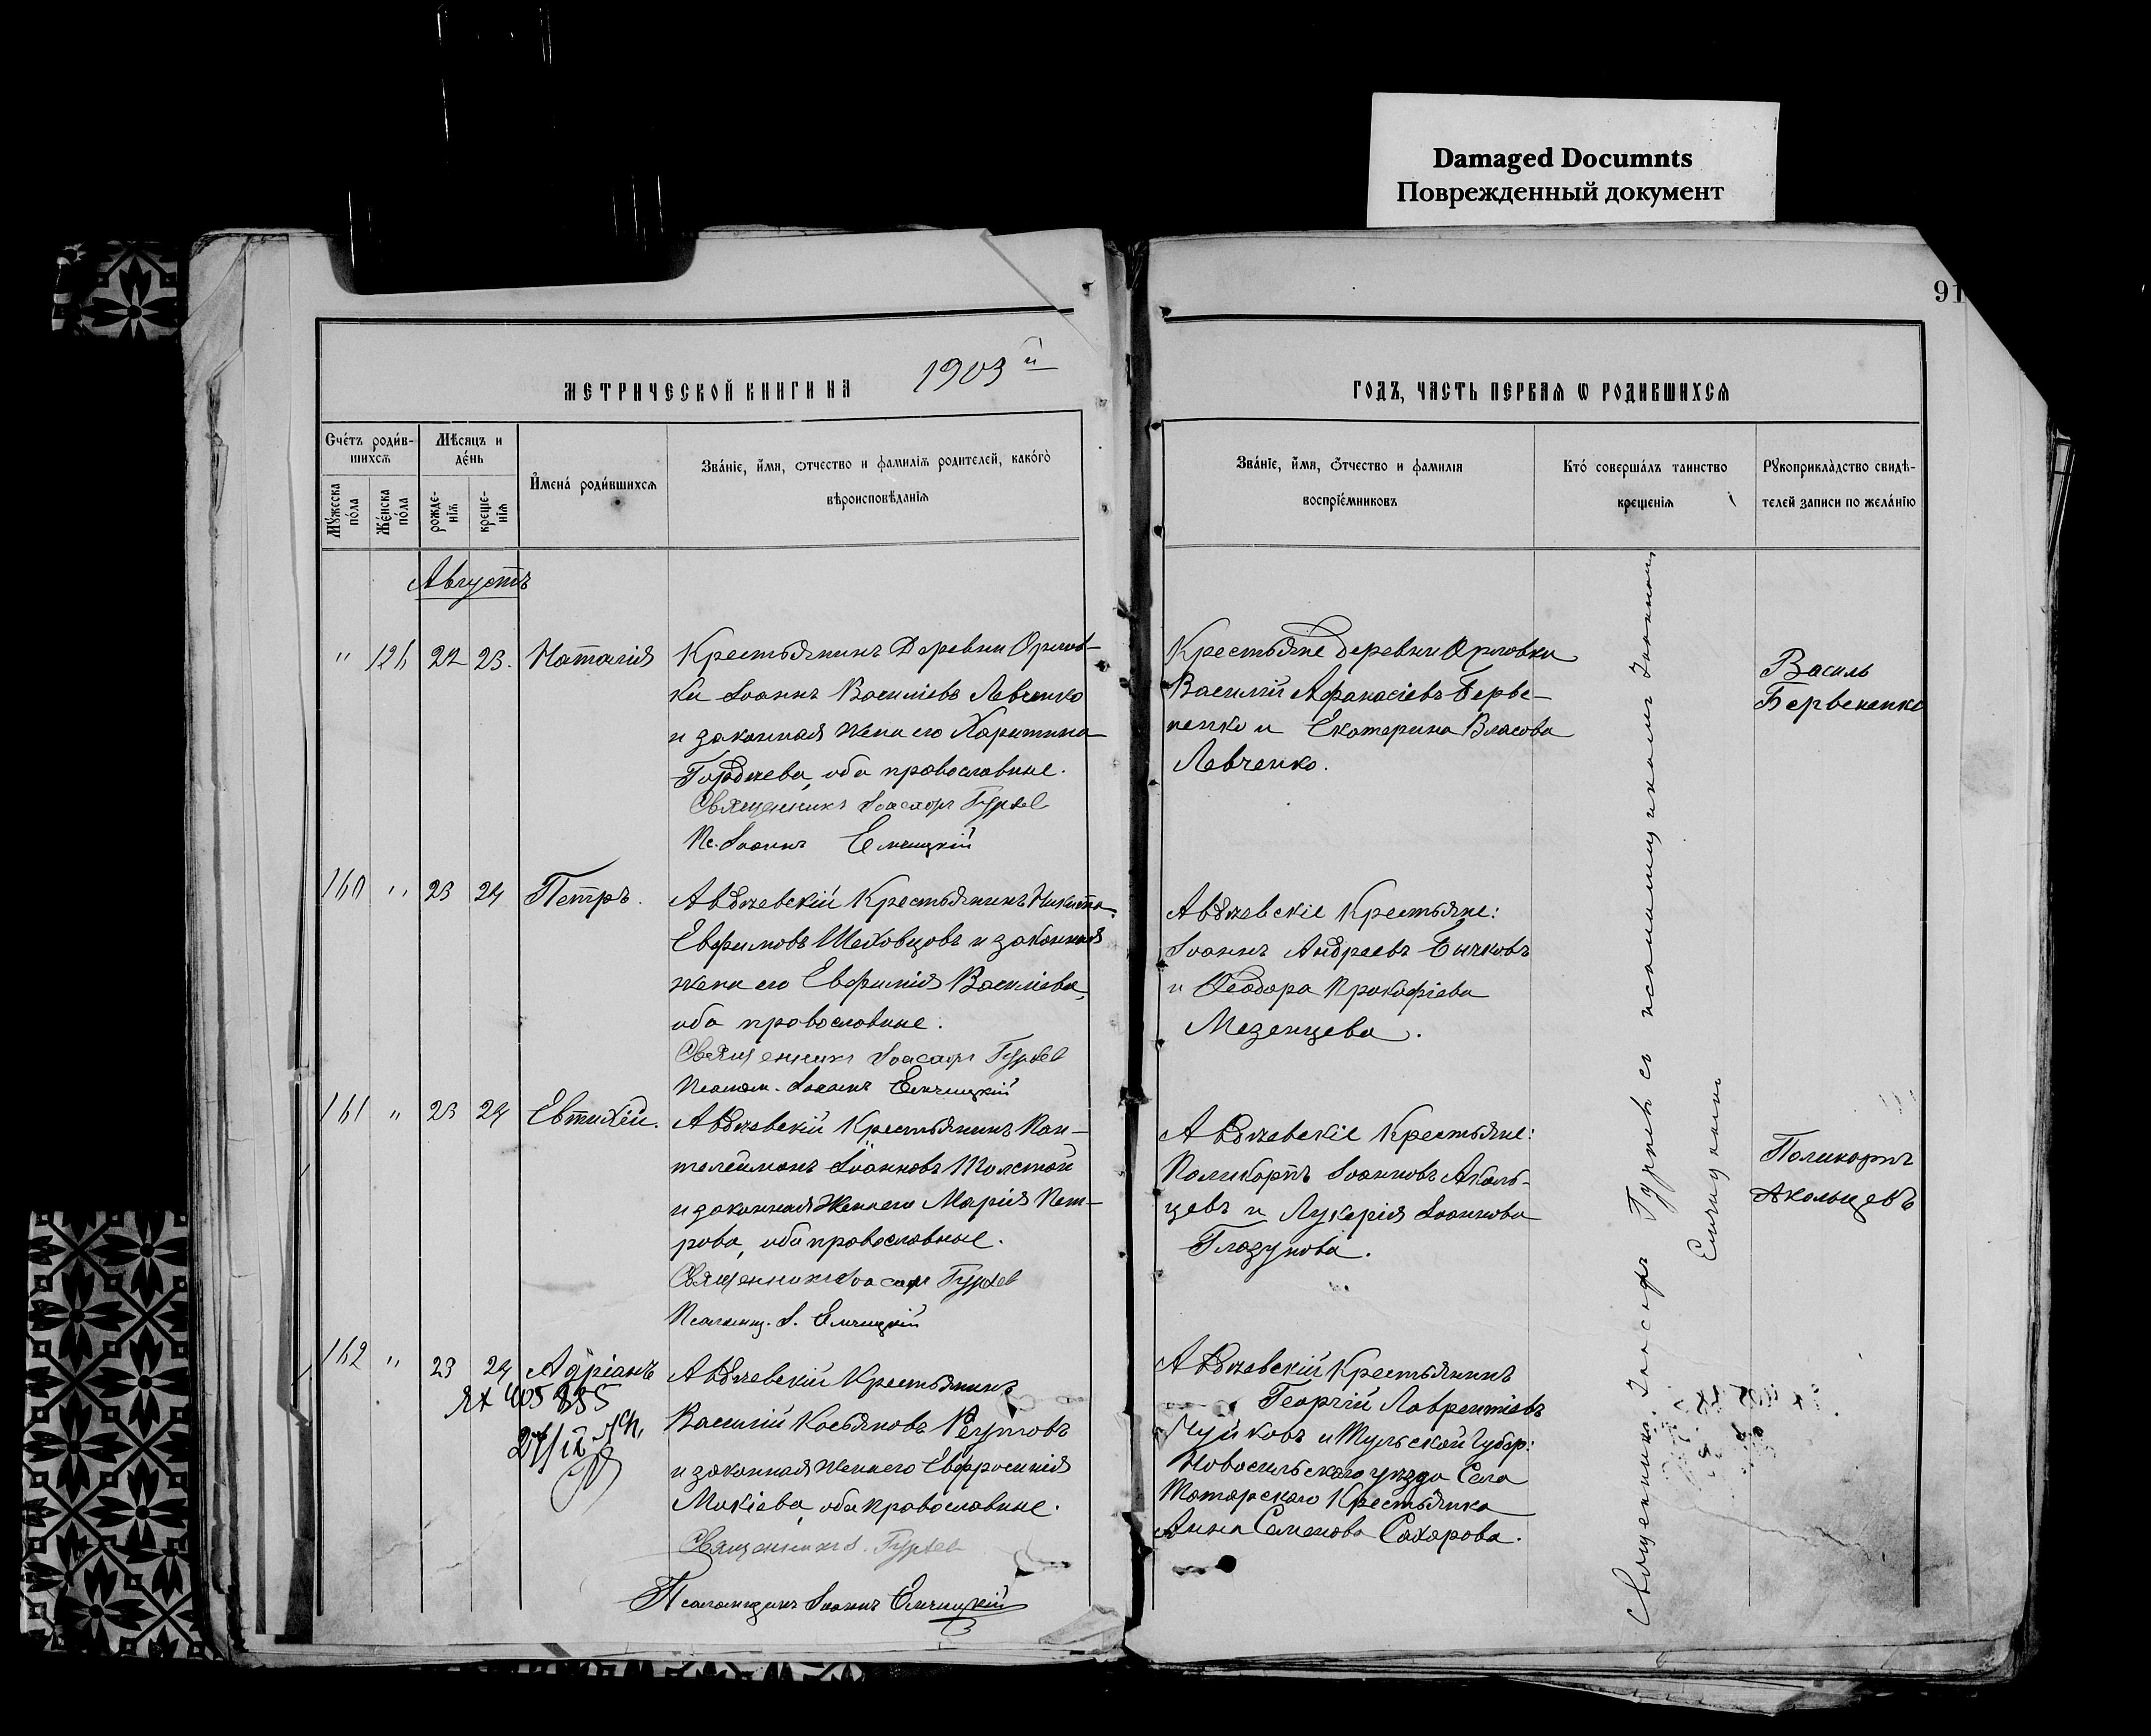 Damaged Documnts
Поврежденный документ
91
МЕТРИЧЕСКОЙ КНИГИ НА 1903 й
ГОДЪ, ЧАСТЬ ПЕРВАЯ Ѡ РОДИВШИХСЯ
Счетъ родив-
шихся
Мужеска
пола
Женска
пола
Мѣсяцъ и
день
рожде-
нія
креще-
нія
Имена родившихся
Званіе, имя, отчество и фамилія родителей, какого
вѣроисповѣданія
Званіе, имя, отчество и фамилія
воспріемниковъ
Кто совершалъ таинство
крещенія
Рукоприкладство свидѣ-
телей записи по желанію
Августъ
" 126 22 23. Наталія
Крестьянинъ Деревни Орлов-
ки Іоаннъ Василіевъ Левченко
и законная жена его Харитина
Гордѣева, оба православные.
Священникъ Іоасафъ Гурьев
Пс. Іоаннъ
Крестьяне деревни Орловки
Василій Афанасіевъ Бервe-
ненко и Екатерина Власова
Левченко.
Василь
Бервененко
160 " 23 24 Петръ.
Авдѣевскій Крестьянинъ Никита
Евфимовъ Шаховцовъ и законная
жена его Евфимія Василіева,
оба православные.
Священникъ Іоасафъ Гурьев
Псалом. Іоаннъ
Авдѣевскіе Крестьяне:
Іоаннъ Андреевъ Бычковъ
и Ѳеодора Прокофіева
Мезенцева.
161 " 23 24 Евтихій.
Авдѣевскій Крестьянинъ Пан-
телеймонъ Іоанновъ Толстой
и законная жена его Марія Пет-
рова, оба православные.
Священникъ Іоасафъ Гурьев
Псаломщ. І.
Авдѣевскіе Крестьяне:
Поликарпъ Іоанновъ Аколь-
цевъ и Лукерія Іоаннова
Глазунова.
Поликарпъ
Акольцевъ
162 " 23 24 Адріанъ
405 335
Авдѣевскій Крестьянинъ
Василій Косьяновъ
и законная жена его Евфросинія
Мокіева, оба православные.
Священникъ І. Гурьев
Псаломщикъ Іоаннъ
Авдѣевскій Крестьянинъ
Георгій Лаврентіевъ
Чуйковъ и Тульской Губер:
Новосильскаго уѣзда Села
Татарскаго Крестьянка
Анна Семенова Сахарова.
Священникъ Іоасафъ Гурьев съ псаломщикомъ Іоанномъ